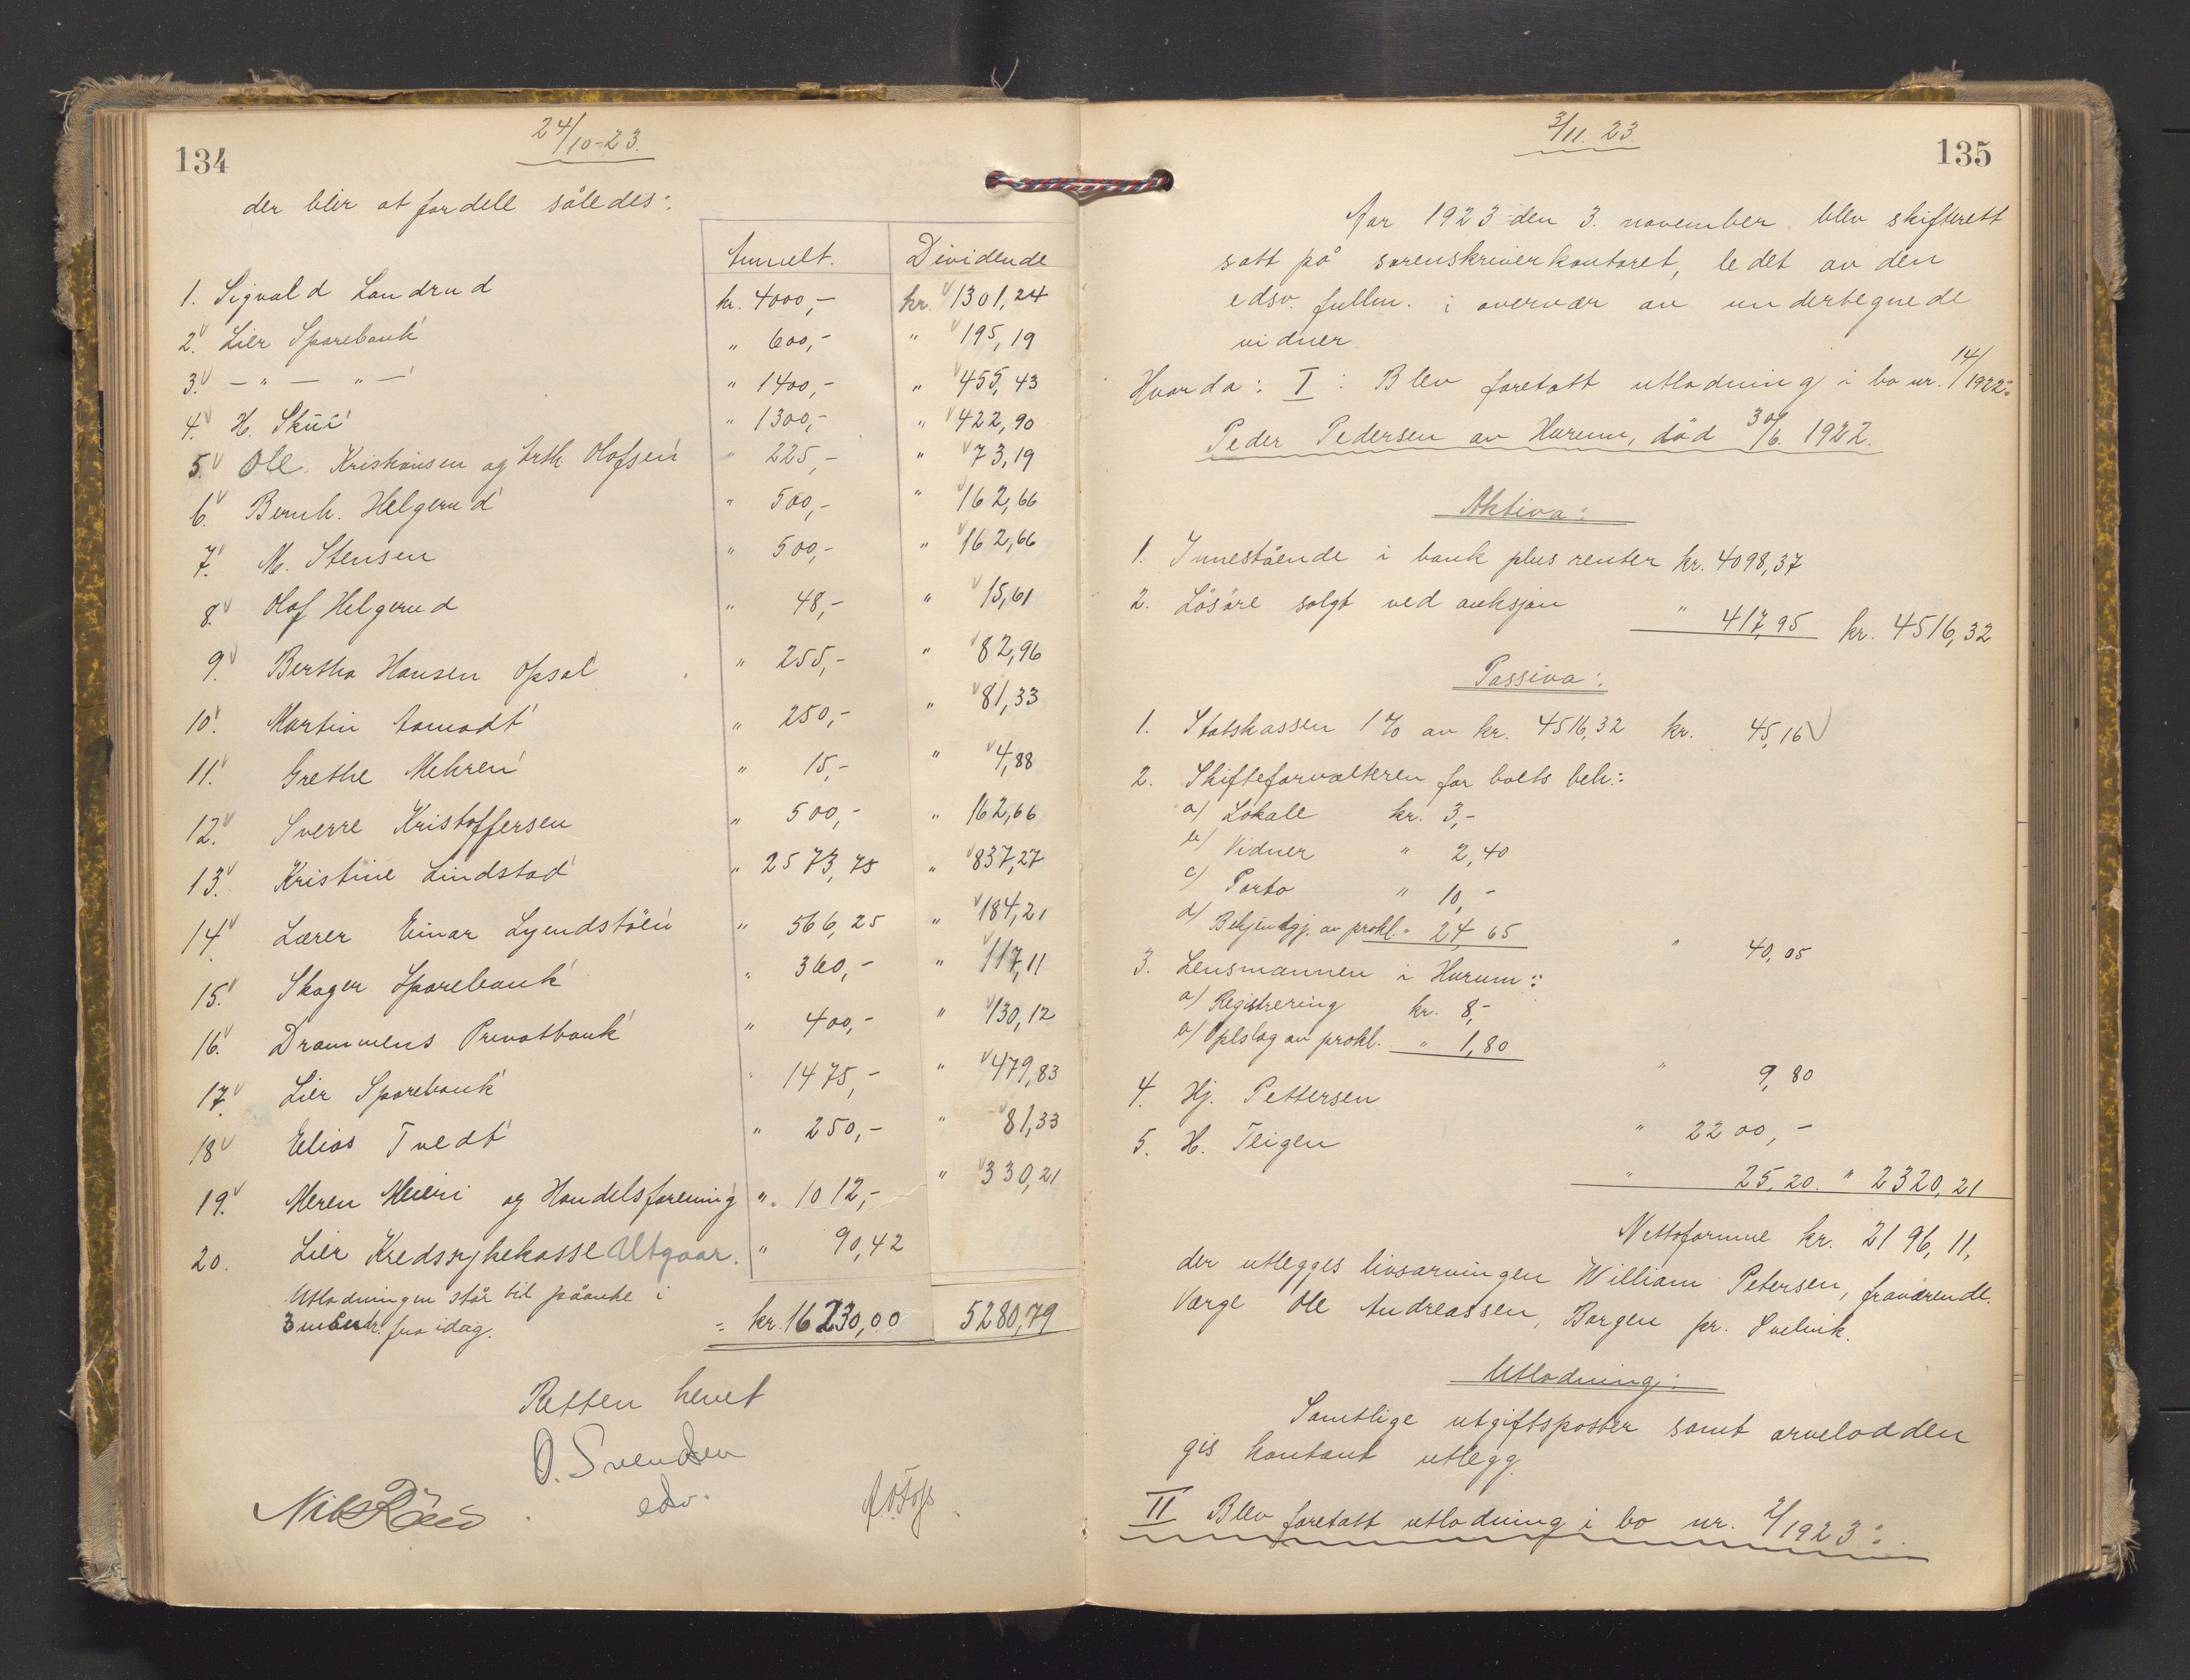 134
24/10-23.
der blir at fordele således:
Anmelt. Dividende
1. Sigvald Landrud kr. 4000,- kr. 1301,24
2. Lier Sparebank " 600,- " 195,19
3. - " - " - " 1400,- " 455,43
4. H. Skui " 1300,- " 422,90
5. Ole Kristiansen og Arth. Olafsen " 225,- " 73,19
6. Bernh. Helgerud " 500,- " 162,66
7. M. Stensen " 500,- " 162,66
8. Olaf Helgerud " 48,- " 15,61
9. Bertha Hansen Opsal " 255,- " 82,96
10. Martin Aamodt " 250,- " 81,33
11. Grethe Mehren " 15,- " 4,88
12. Sverre Kristoffersen " 500,- " 162,66
13. Kristine Lindstad " 2573,75 " 837,27
14. Lærer Einar Lyndstöen " 566,25 " 184,21
15. Skoger Sparebank " 360,- " 117,11
16. Drammens Privatbank " 400,- " 130,12
17. Lier Sparebank " 1475,- " 479,83
18 Elias Tvedt " 250,- " 81,33
19. Meren Meieri og Handelsforening " 1012,- " 330,21
20. Lier Kredssykekasse Utgaar. " 90,42
Utlodningen står til påanke i
3 mndr. fra idag.
= kr. 16230,00 5280,79
Retten hevet
O. Svendsen
edv.
135
3/11. 23.
Aar 1923 den 3. november blev skifterett
satt på sorenskriverkontoret, ledet av den
edsv. fullm. i overvær av undertegnede
vidner.
Hvorda: I: Blev foretatt utlodning i bo nr. 14/1922:
Peder Pedersen av Hurum, död 30/6. 1922.
Aktiva:
1. Innestående i bank plus renter kr. 4098,37
2. Lösöre solgt ved auksjon " 417,95 kr. 4516,32
Passiva:
1. Statskassen 1% av kr. 4516,32 kr. 45,16
2. Skifteforvalteren for boets beh.:
a/ Lokale kr. 3,-
b/ Vidner " 2,40
c/ Porto " 10,-
d/ Bekjendtgj. av prokl. " 24,65 " 40,05
3. Lensmannen i Hurum:
a/ Registrering kr. 8,-
b/ Opslag av prokl. " 1,80 " 9,80
4. Hj. Pettersen " 2200,-
5. H. Teigen " 25,20. " 2320,21
Nettoformue kr. 2196,11,
der utlegges livsarvingen William Petersen, fraværende.
Værge Ole Andreassen, Bergen pr. Svelvik.
Utlodning:
Samtlige utgiftsposter samt arvelodden
gis kontant utlegg.
II Blev foretatt utlodning i bo nr. 2/1923: